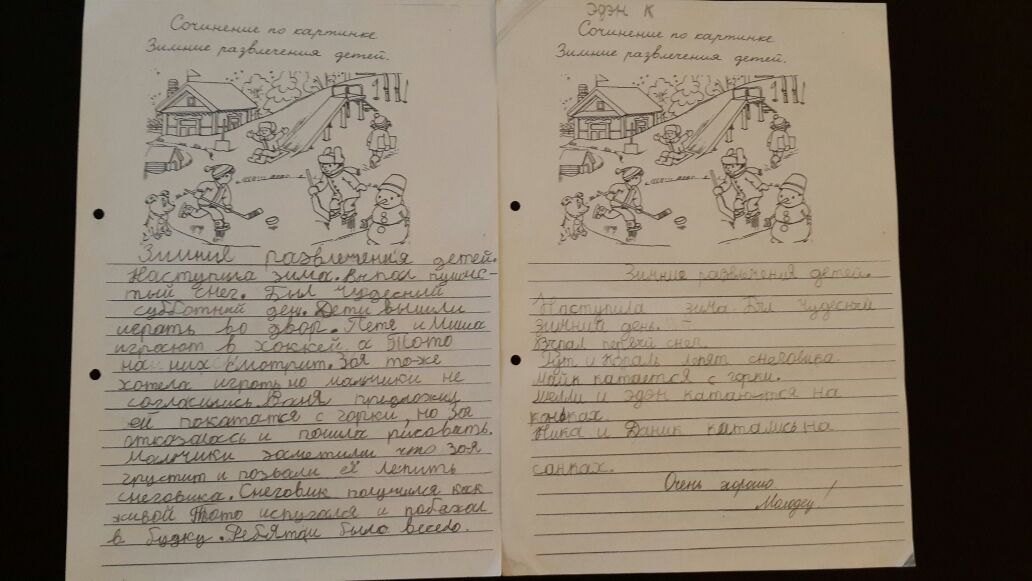 Сочинение по картинке
Зимние развлечения детей.
Зимние развлечения детей.
Наступила зима. Выпал пушис-
тый снег. Был чудесный
субботний ден. Дети вышли
играть во двор. Петя и Миша
играют в хоккей, а Тото
на них смотрит. Зоя тоже
хотела играть но мальчики не
согласились. Ваня предложил
ей покататся с горки, но Зоя
отказалась и пошла рисовать.
Мальчики заметили что Зоя
грустит и позвали её лепить
снеговика. Снеговик получился как
живой Тото испугался и побежал
в будку. Ребятам было весело.
Эдэн К
Сочинение по картинке
Зимние развлечения детей.
Зимние развлечения детей.
Наступила зима. Был чудесный
зимний день.
Выпал первый снег.
и лепят снеговика.
Майк катается с горки.
Шелли и Эдэн катаются на
коньках.
Ника и Даник катались на
санках.
Очень хорошо
Молодец!